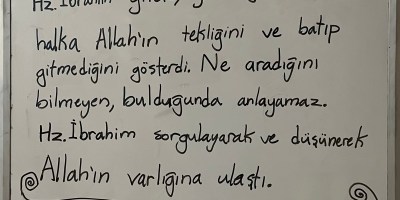 Hz. İbrahim
halka Allah'ın tekliğini ve batıp
gitmediğini gösterdi. Ne aradığını
bilmeyen, bulduğunda anlayamaz.
Hz. İbrahim sorgulayarak ve düşünerek
Allah'ın varlığına ulaştı.